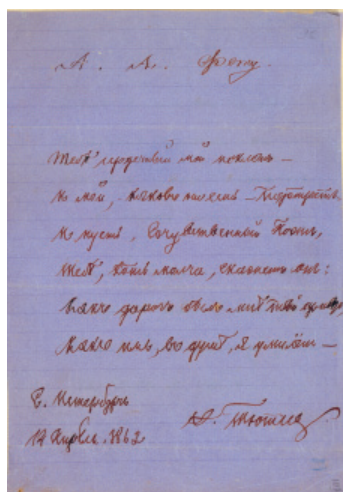 А. А. Фету.
Тебѣ сердечный мой поклонъ —
И мой, каковъ ни есть — портретъ
И пусть, Сочувственный Поэтъ,
Тебѣ, хоть молча, скажетъ онъ:
Какъ дорогъ былъ мнѣ твой привѣтъ,
Какъ имъ, въ душѣ, я умилёнъ —
С. Петербургъ
Апрѣль. 1862
Тютчевъ